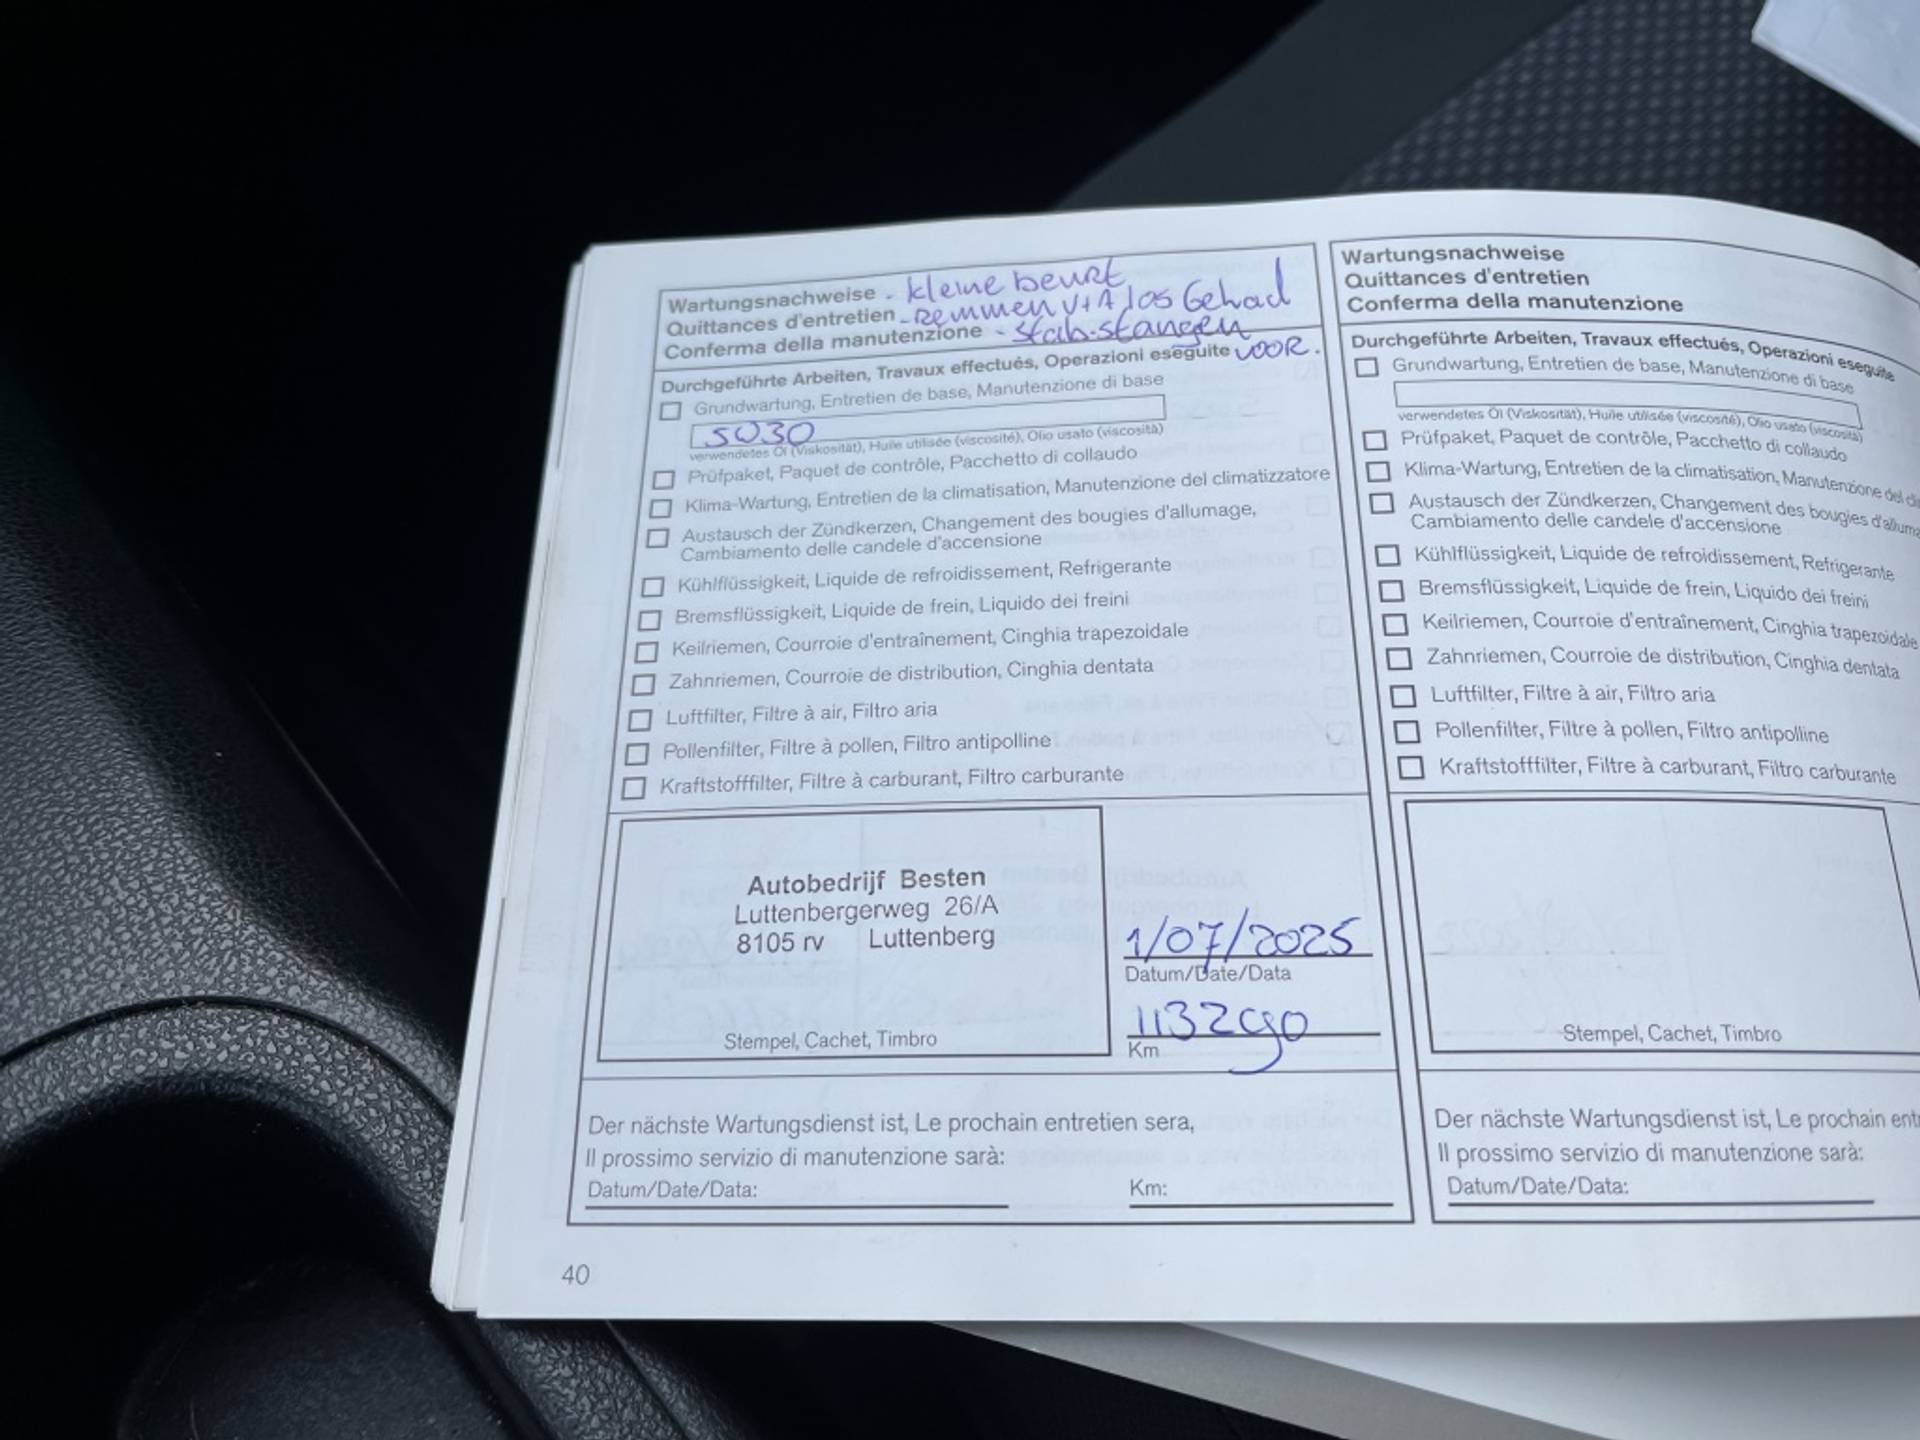 Wartungsnachweise - kleine beurt
Quittances d'entretien - Remmen V+A los Gehad
Conferma della manutenzione - Stab.stangen
Durchgeführte Arbeiten, Travaux effectués, Operazioni eseguite VOOR.
Grundwartung, Entretien de base, Manutenzione di base
5W30
verwendetes Öl (Viskosität), Huile utilisée (viscosité), Olio usato (viscosità)
Prüfpaket, Paquet de contrôle, Pacchetto di collaudo
Klima-Wartung, Entretien de la climatisation, Manutenzione del climatizzatore
Austausch der Zündkerzen, Changement des bougies d'allumage,
Cambiamento delle candele d'accensione
Kühlflüssigkeit, Liquide de refroidissement, Refrigerante
Bremsflüssigkeit, Liquide de frein, Liquido dei freini
Keilriemen, Courroie d'entraînement, Cinghia trapezoidale
Zahnriemen, Courroie de distribution, Cinghia dentata
Luftfilter, Filtre à air, Filtro aria
Pollenfilter, Filtre à pollen, Filtro antipolline
Kraftstofffilter, Filtre à carburant, Filtro carburante
Autobedrijf Besten
Luttenbergerweg 26/A
8105 rv Luttenberg
Stempel, Cachet, Timbro
1/07/2025
Datum/Date/Data
113290
Km
Der nächste Wartungsdienst ist, Le prochain entretien sera,
Il prossimo servizio di manutenzione sarà:
Datum/Date/Data:
Km:
40
Wartungsnachweise
Quittances d'entretien
Conferma della manutenzione
Durchgeführte Arbeiten, Travaux effectués, Operazioni eseguite
Grundwartung, Entretien de base, Manutenzione di base
verwendetes Öl (Viskosität), Huile utilisée (viscosité), Olio usato (viscosità)
Prüfpaket, Paquet de contrôle, Pacchetto di collaudo
Klima-Wartung, Entretien de la climatisation, Manutenzione del
Austausch der Zündkerzen, Changement des bougies
Cambiamento delle candele d'accensione
Kühlflüssigkeit, Liquide de refroidissement, Refrigerante
Bremsflüssigkeit, Liquide de frein, Liquido dei freini
Keilriemen, Courroie d'entraînement, Cinghia trapezoidale
Zahnriemen, Courroie de distribution, Cinghia dentata
Luftfilter, Filtre à air, Filtro aria
Pollenfilter, Filtre à pollen, Filtro antipolline
Kraftstofffilter, Filtre à carburant, Filtro carburante
Stempel, Cachet, Timbro
Der nächste Wartungsdienst ist, Le prochain
Il prossimo servizio di manutenzione sarà:
Datum/Date/Data: